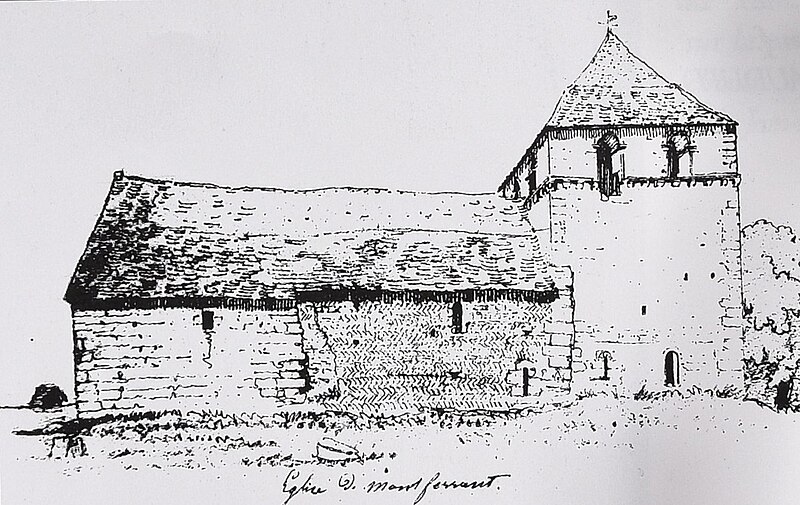 Eglise D. Montferrant.